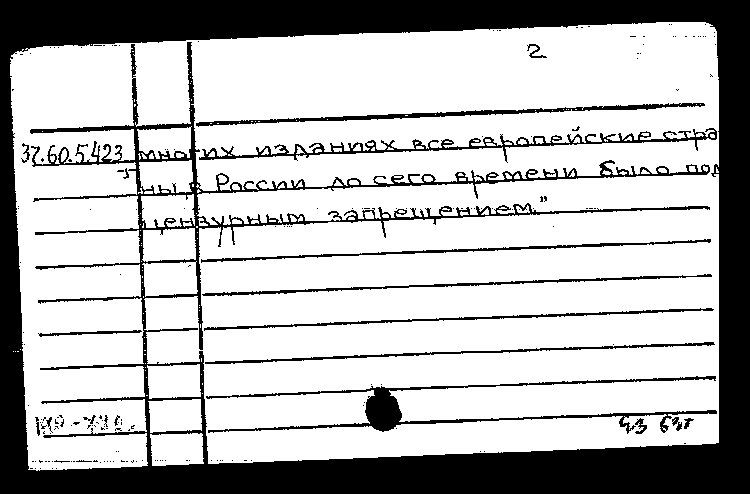 2
37.60.5.423 многих изданиях все европейские стра
ны, в России до сего времени было под
цензурным запрещением."